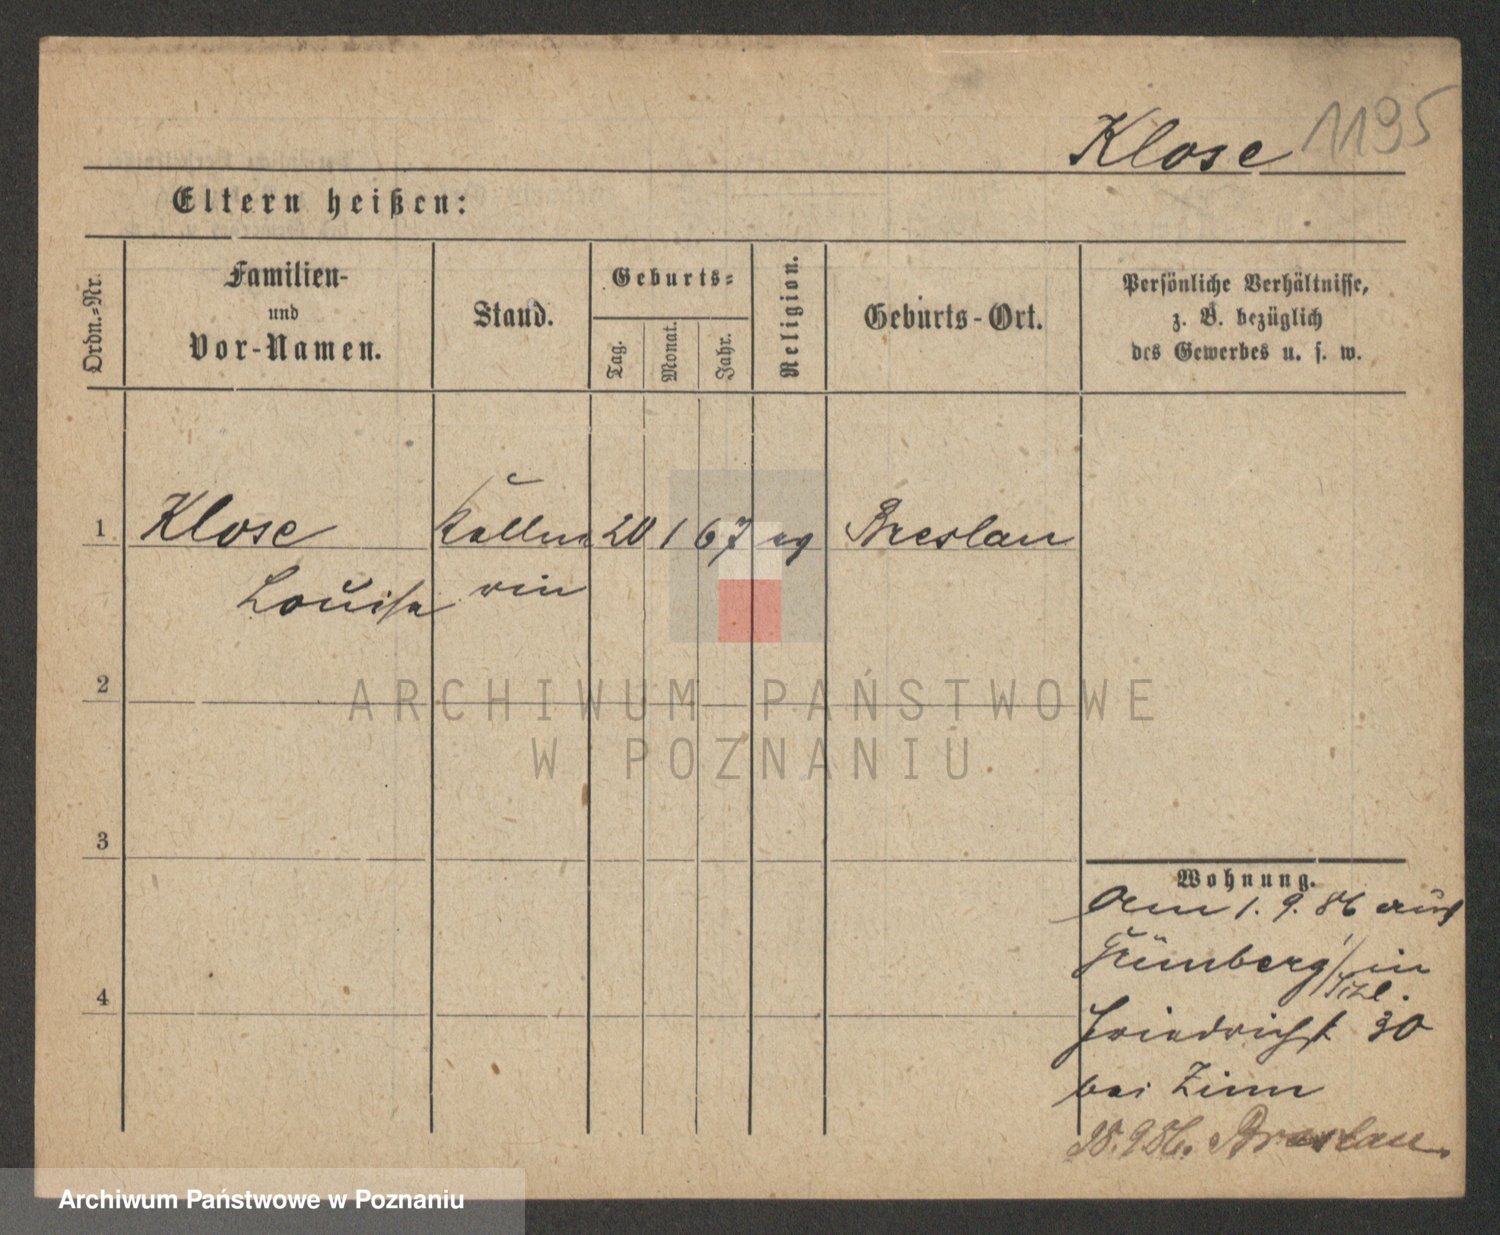 Klose 1195
Eltern heißen:
Ordn.-Nr.
Familien-
und
Vor-Namen.
Stand.
Geburts-
Tag.
Monat.
Jahr.
Religion.
Geburts-Ort.
Persönliche Verhältnisse,
z. B. bezüglich
des Gewerbes u. s. w.
1 Klose Kellne 20 1 67 ev Breslau
Louise rin
2
3
4
Wohnung.
Am 1. 9. 86 aus
in
Friedrichst 30
bei Zinn
28.9.86. Breslau.
ARCHIWUM PAŃSTWOWE
W POZNANIU
Archiwum Państwowe w Poznaniu